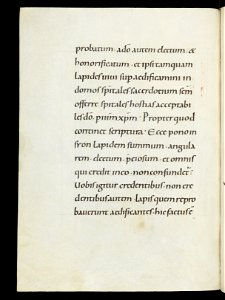 probatum · a dō autem electum · &
honorificatum · et ipsi tamquam
lapides uiui sup aedificamini in
domos spitales sacerdotium scm̄
offerre spitales hostias acceptabi
les dō · p ihm xpm · Propter quod
continet scriptura · Ecce pono in
sion lapidem summum · angula
rem · electum · p̄ciosum · et omnis
qui credit in eo · non confundet ·
Uobis igitur credentibus · non cre
dentibus autem · lapis quem repro
bauerunt aedificantes · hic factus ē